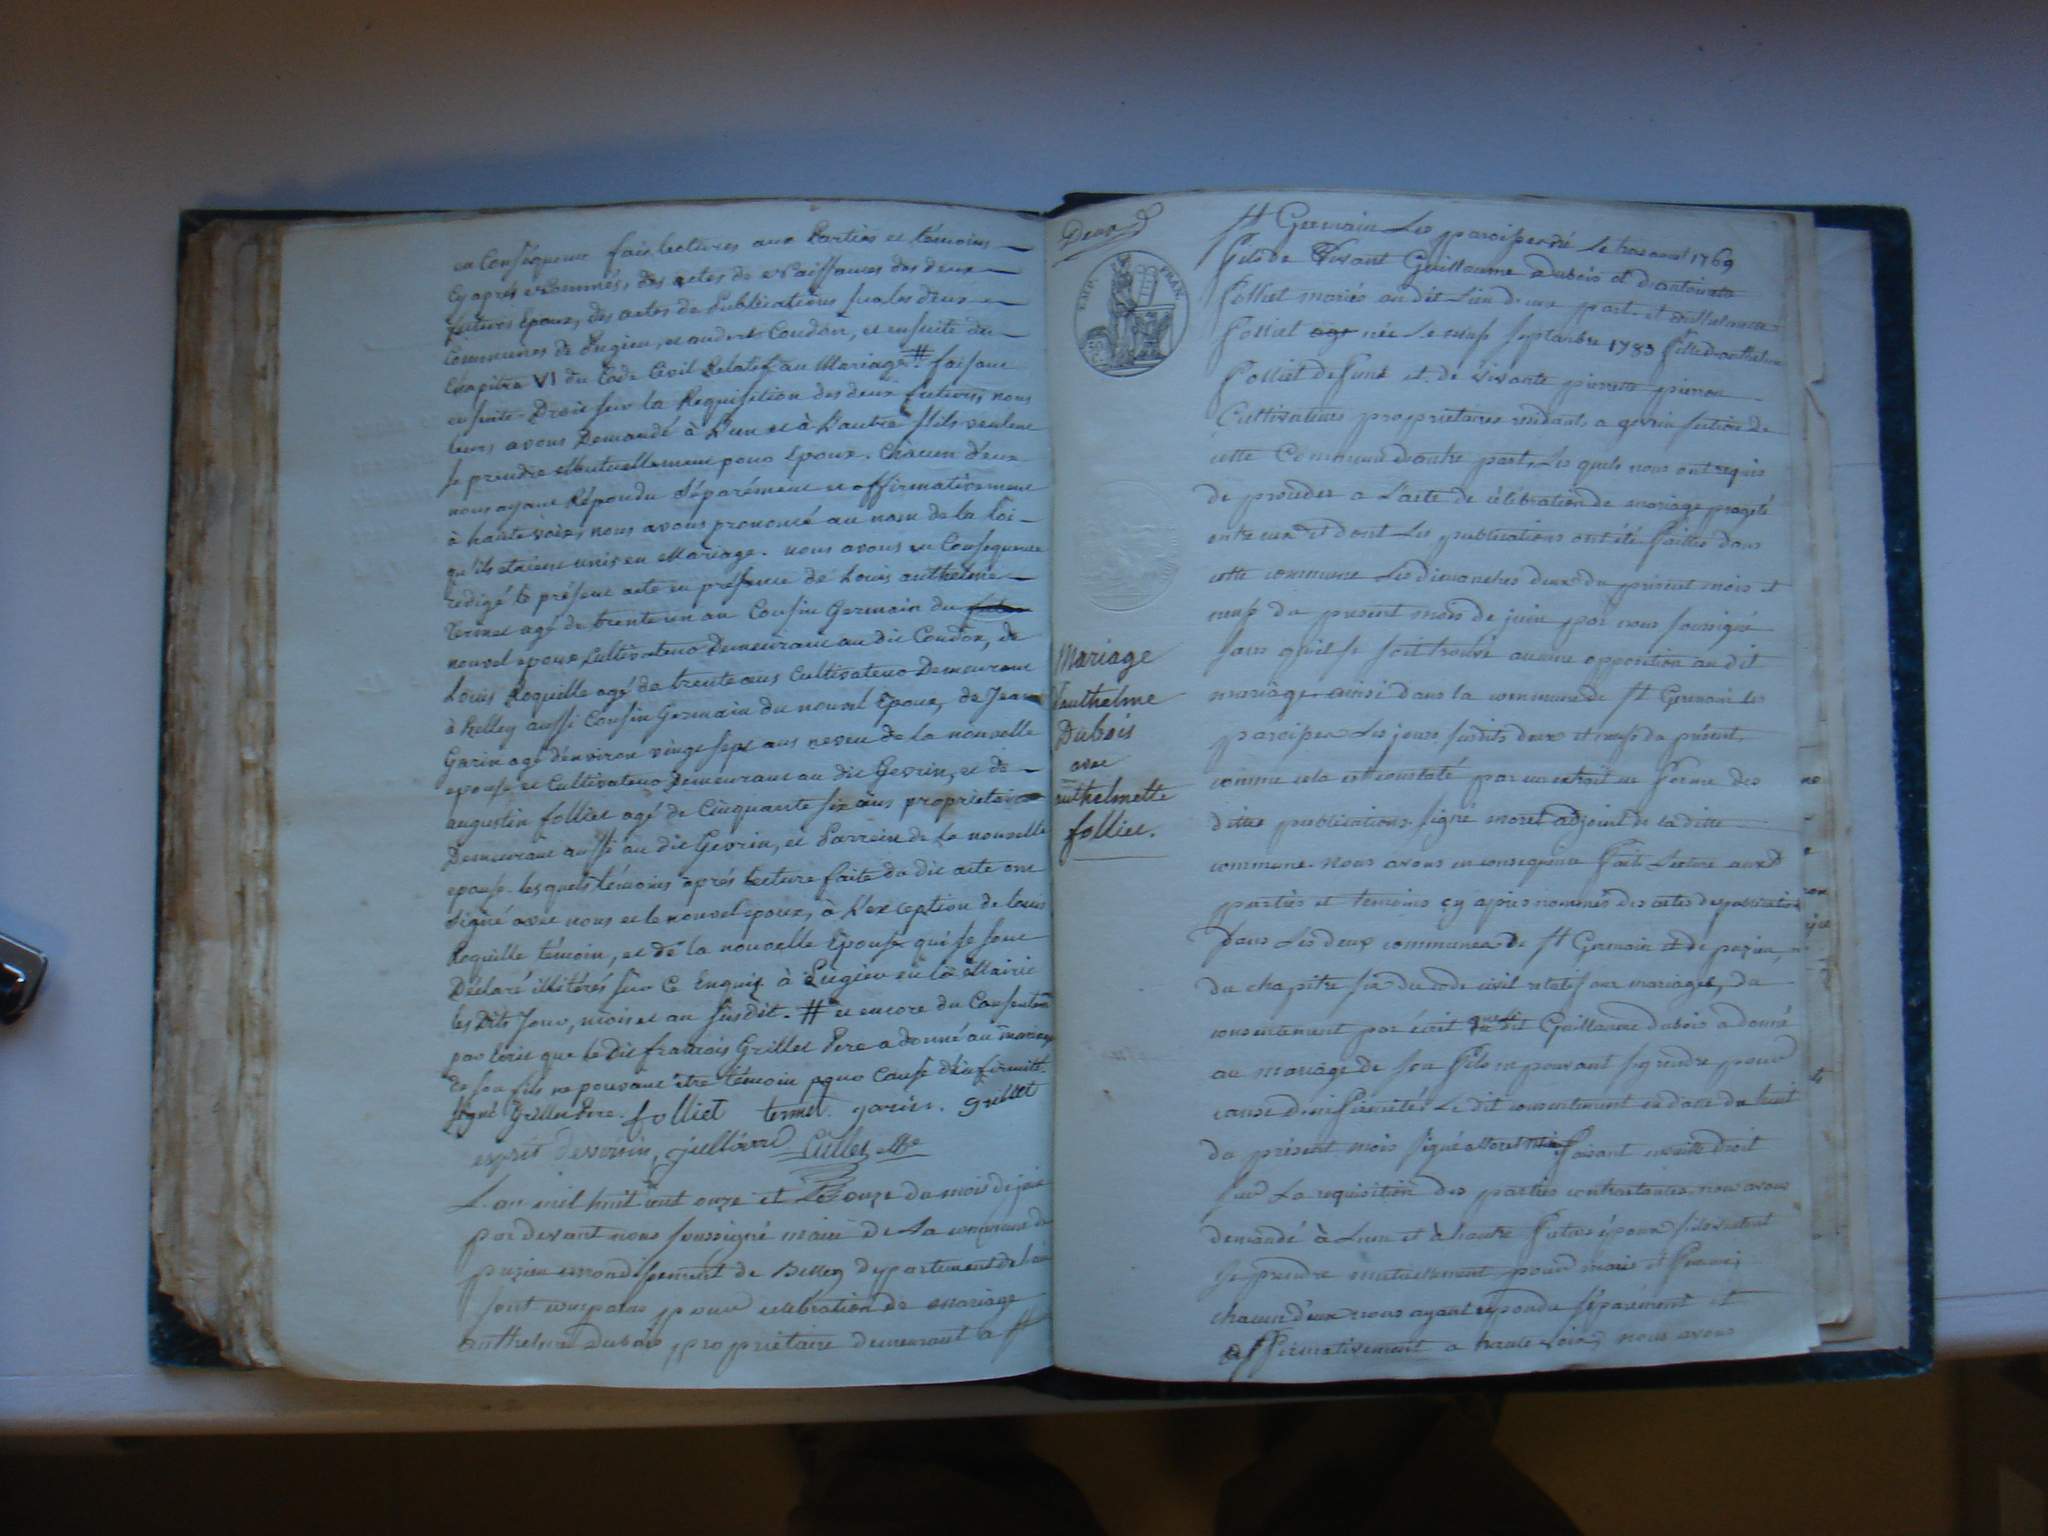 en Conséquence fais lectures aux Parties et témoins
Cy après nommés, des actes de Naissances des deux
futurs Epoux, des actes de Publications frales deux
Communes de Pugieu, et andert Coudon, et ensuite du
Chapitre VI du Code Civil Relatif au Mariage # faisant
ensuite Droit sur la Requisition des deux futurs, nous
leurs avons Demandé à L'un et à L'autre s'ils veulent
se prendre Mutuellement pour Epoux. Chacun d'eux
nous ayant Répondu Séparément et affirmativement
à haute voix, nous avons prononcé au nom de la Loi
qu'ils étaient unis en Mariage. nous avons en Consequence
redigé le présent acte en présence de Louis anthelme
Termet agé de trente un an Cousin Germain du
nouvel epoux Cultivateur Demeurant au dit Coudon, de
Louis Roquille agé de trente ans Cultivateur Demeurant
à Belley aussi Cousin Germain du nouvel Epoux, de Jean
Garin agé d'environ vingt sept ans neveu de la nouvelle
epouse et Cultivateur Demeurant au dit Gevrin, et de
augustin folliet agé de Cinquante six ans proprietaire
Demeurant aussi au dit Gevrin, et Parrein de la nouvelle
epouse. lesquels témoins après Lecture faite du dit acte ont
Signé avec nous et le nouvel epoux, à L'exception de Louis
Roquille témoin, et de la nouvelle Epouse qui se sont
Déclaré illitérés sur Ce Enquis à Pugieu en la Mairie
les Dits Jour, mois et an Susdit. # et encore du Consentem
par écrit que le dit francois Grillet Pere a donné au mariage
de son fils ne pouvant être témoin pour Cause d'Infirmité
Signé Grillet Pere. folliet termet garin. Grillet
L'an mil huit cent onze et le onze du mois de juin
par devant nous soussigné maire de La commune de
pugieu arrondissement de Belley departement de l'ain
sont comparus pour celebration de mariage
anthelme Dubois proprietaire demeurant a St
Deux
EMP. FRAN.
Mariage
d'anthelme
Dubois
avec
anthelmette
folliet.
St Germain Les paroisses né Le tres aout 1769
Fils de Vivant Guillaume Dubois et d'antoinette
Folliet mariés au dit Lieu d'une part, et anthelmette
Folliet née Le neuf septanbre 1783 fille d'anthelme
Folliet defunt et de vivante pierrette pierron
Cultivateurs proprietaires residants a gevrin section de
cette Commune d'autre part, Les quels nous ont requis
de proceder a L'acte de célébration de mariage progeté
entre eux et dont Les publications ont été faittes dans
cette commune Les dimanches deux du présent mois et
neuf du present mois de juin par nous soussigné
sans qu'il se soit trouvé aucune opposition au dit
mariage ainsi dans la commune de St Germain les
paroisses Les jours susdits deux et neuf du présent
comme cela est constaté par un extrait en forme des
dittes publications. signé moret adjoint de la ditte
commune. Nous avons en consequence fait Lecture aux
parties et temoins cy apres nommés des actes de publication
Dans Les deux communes de St Germain et de pugieu,
du chapitre six du code civil relatif aux mariages, du
consentement par écrit que le dit Guillaume dubois a donné
au mariage de son Fils ne pouvant s'y rendre pour
cause d'infirmités Le dit consentement en date du huit
du présent mois signé Moret faisant ensuite droit
sur La requisition des parties contractantes, nous avons
demandé à L'un et à L'autre Futurs époux s'ils veulent
se prendre mutuellement pour maris et Femme;
chacun d'eux nous ayant répondu séparément et
affirmativement a haute voix, nous avons